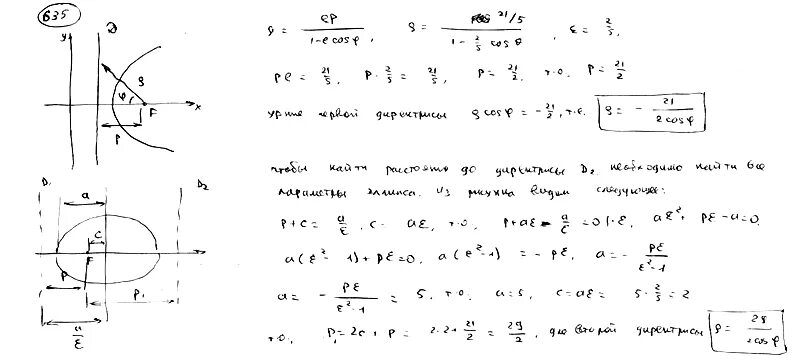 635
y D
ρ
φ
F x
P
D₁ D₂
a
c
F
P P₁
a/ε
ρ = eP/(1-e cosφ), ρ = 21/5 / (1 - 2/5 cosθ), ε = 2/5,
Pe = 21/5, P · 2/5 = 21/5, P = 21/2, т.о. P = 21/2
ур-ие первой директрисы ρcosφ = -21/2, т.е. ρ = - 21/(2cosφ)
чтобы найти расстояние до директрисы D₂ необходимо найти все
параметры эллипса. Из рисунка видим следующее:
P+c = a/ε, c = aε, т.о. P+aε - a/ε = 0 | · ε, aε² + Pε - a = 0.
a(ε² - 1) + Pε = 0, a(ε² - 1) = - Pε, a = - Pε/(ε² - 1)
a = - Pε/(ε² - 1) = 5. т.о. a = 5, c = aε = 5 · 2/5 = 2
т.о. P₁ = 2c + P = 2·2 + 21/2 = 29/2, для второй директрисы ρ = 29/(2cosφ)